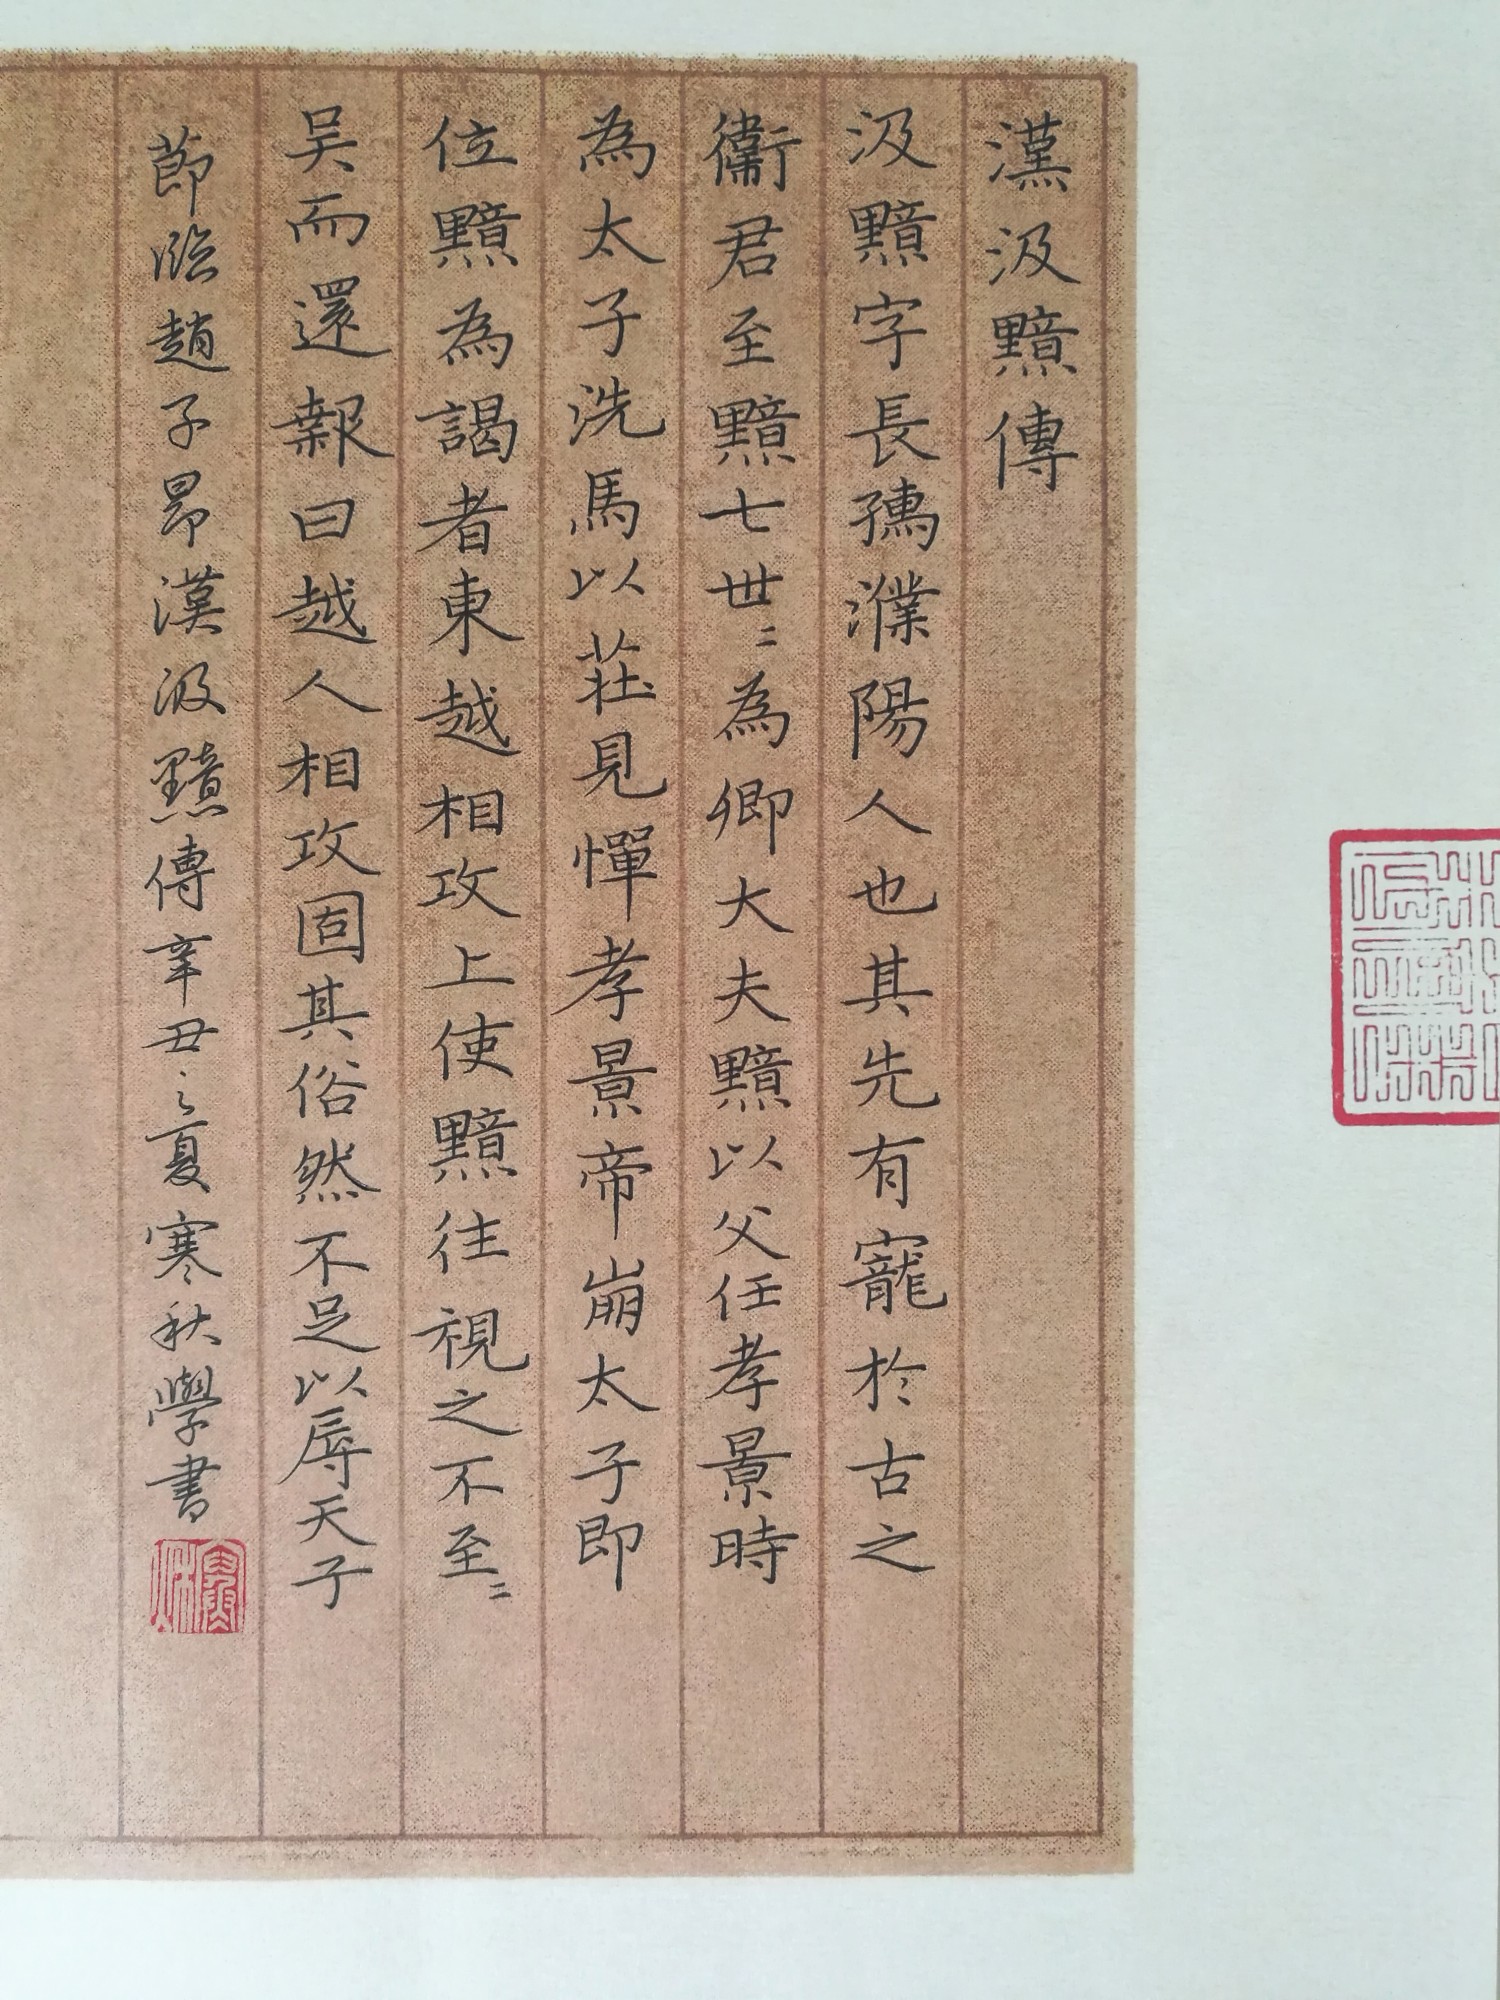 漢汲黯傳
汲黯字長孺濮陽人也其先有寵於古之
衞君至黯七世〻為卿大夫黯以父任孝景時
為太子洗馬以莊見憚孝景帝崩太子即
位黯為謁者東越相攻上使黯往視之不至〻
吳而還報曰越人相攻固其俗然不足以辱天子
節臨趙子昂漢汲黯傳辛丑之夏寒秋學書
寒秋